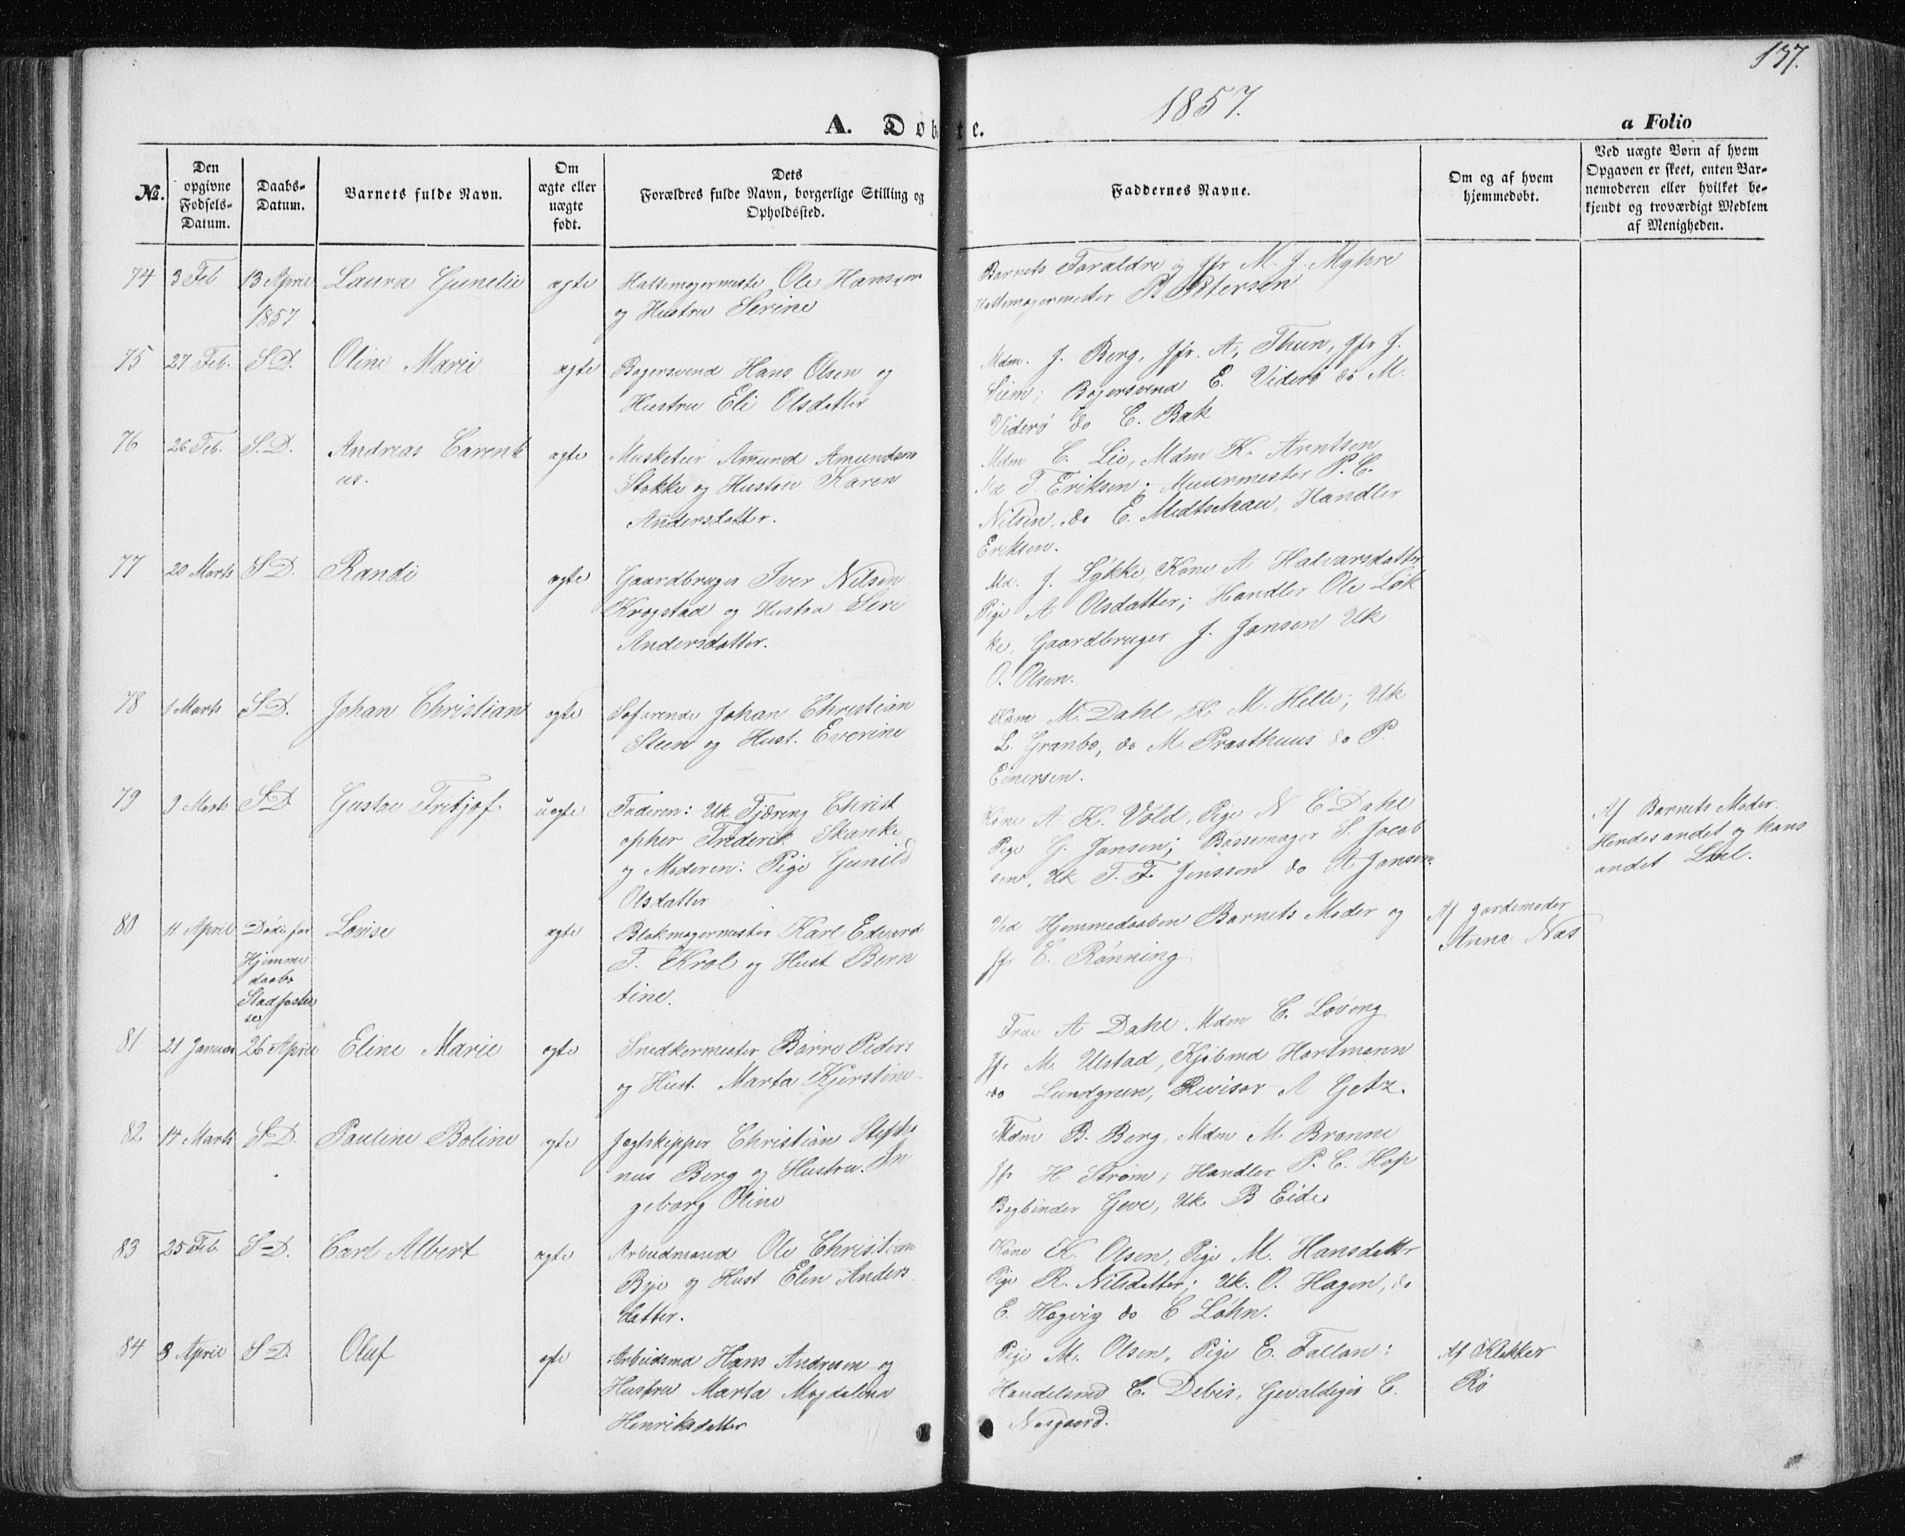 137.
1857.
A. Døbte.
a Folio
No.
Den opgivne Fødsels-Datum.
Daabs-Datum.
Barnets fulde Navn.
Om ægte eller uægte født.
Dets Forældres fulde Navn, borgerlige Stilling og Opholdssted.
Faddernes Navne.
Om og af hvem hjemmedøbt.
Ved uægte Børn af hvem Opgaven er skeet, enten Barnemoderen eller hvilket bekjendt og troværdigt Medlem af Menigheden.
74 3 Feb 13 April 1857 Laura Gunelie ægte
Hattemagermester Ole Hansen
og Hustru Serine
Barnets Forældre og Jfr M. J. Myhre
Hattemagermester P. Petersen
75 27 Feb. S.D. Oline Marie ægte
Bagersvend Hans Olsen og
Hustru Eli Olsdatter
Mdm. J. Berg, Jfr. A. Thun, Jfr J.
Siem; Bagersvend E. Viderø do M.
Viderø do C. Bak
76 26 Feb. S.D. Andreas Carenti
us. ægte
Musketeer Amund Amundsen
Stokke og Hustru Karen
Andersdatter.
Mdm C. Lie, Mdm K. Arntsen
Md T. Eriksen; Muurmester P. C.
Nilsen, do E. Medtschau, Handler
Eriksen.
77 20 Marts S.D. Randi ægte
Gaardbruger Iver Nilsen
Krogstad og Hustru Seri
Andersdatter.
Md. J. Løkke, Kone A Halvarsdatter
Pige A Olsdatter; Handler Ole Løk
ke, Gaardbruger J. Jansen Uk
O. Olsen.
78 1 Marts S.D. Johan Christian ægte
Søfarende Johan Christian
Steen og Hust. Everine
Kone M. Dahl, K. M. Helle; Uk
L. Granbo, do M. Præsthuus do P.
Einersen.
79 9 Marts S.D. Gustav Fritjof. uægte
Faderen: Uk Tjæreng Christ
opher Frederik Skanke
og Moderen: Pige Gunild
Olsdatter
Kone A K. Vold, Pige N C Dahl
Pige G. Jansen; Bøssemager S. Jacob
sen, Uk T. F. Jenssen do A Jansen
Af Barnets Moder.
Hendes andet og hans
andet Leil.
80 11 April Døde før
Hjemme
daabs
Stadfæstel
se Lovise ægte
Blokmagermester Karl Edvard
T. Krol og Hust Bern
tine.
Ved Hjemmedaaben Barnets Moder og
Jfr C. Rønning
Af Jordemoder
Anne Næs
81 21 Januar 26 April Eline Marie ægte
Snedkermester Børre Peders
og Hust. Marta Kjerstine
Frue A Dahl Mdm C. Løveng
Jfr M. Ulstad, Kjøbmd Hartmann
do Lundgreen, Revisor A Getz.
82 14 Marts S.D. Pauline Boline ægte
Jægtskipper Christian Steffe
nus Berg og Hustru In
geborg Oline
Mdm B. Berg, Mdm M Brønne
Jfr H. Strøm; Handler P. C. Hop
Bogbinder Geve, Uk B Eide
83 25 Feb. S.D. Carl Albert ægte
Arbeidsmand Ole Christian
Bye og Hust Elen Anders
datter.
Kone K. Olsen, Pige M. Hansdattr
Pige R. Nilsdatter; Uk. O. Hagen, do
E. Hogvig do C Løhn.
84 8 April S.D. Oluf ægte
Arbeidsmd Hans Andresen og
Hustru Marta Magdalena
Henriksdatter
Pige M. Olsen, Pige E. Fallan;
Handelsmd C. Debis, Gevaldiger C.
Næsgaard.
Af Klokker
Rø